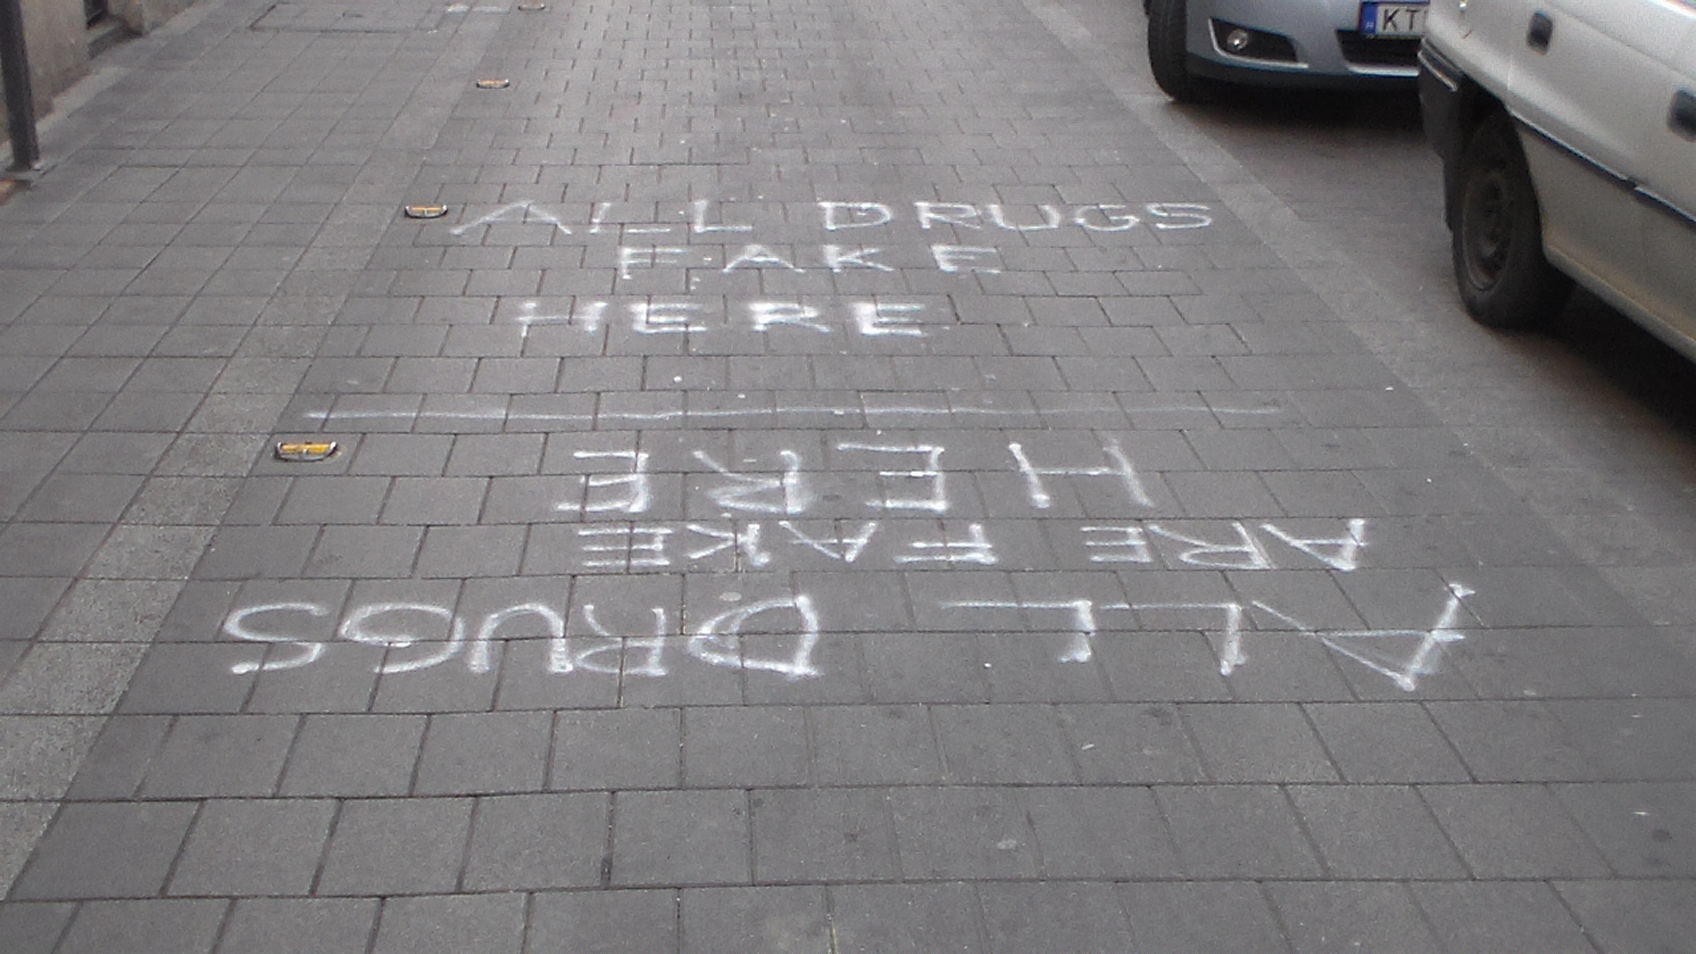 ALL DRUGS
FAKE
HERE
ALL DRUGS
ARE FAKE
HERE